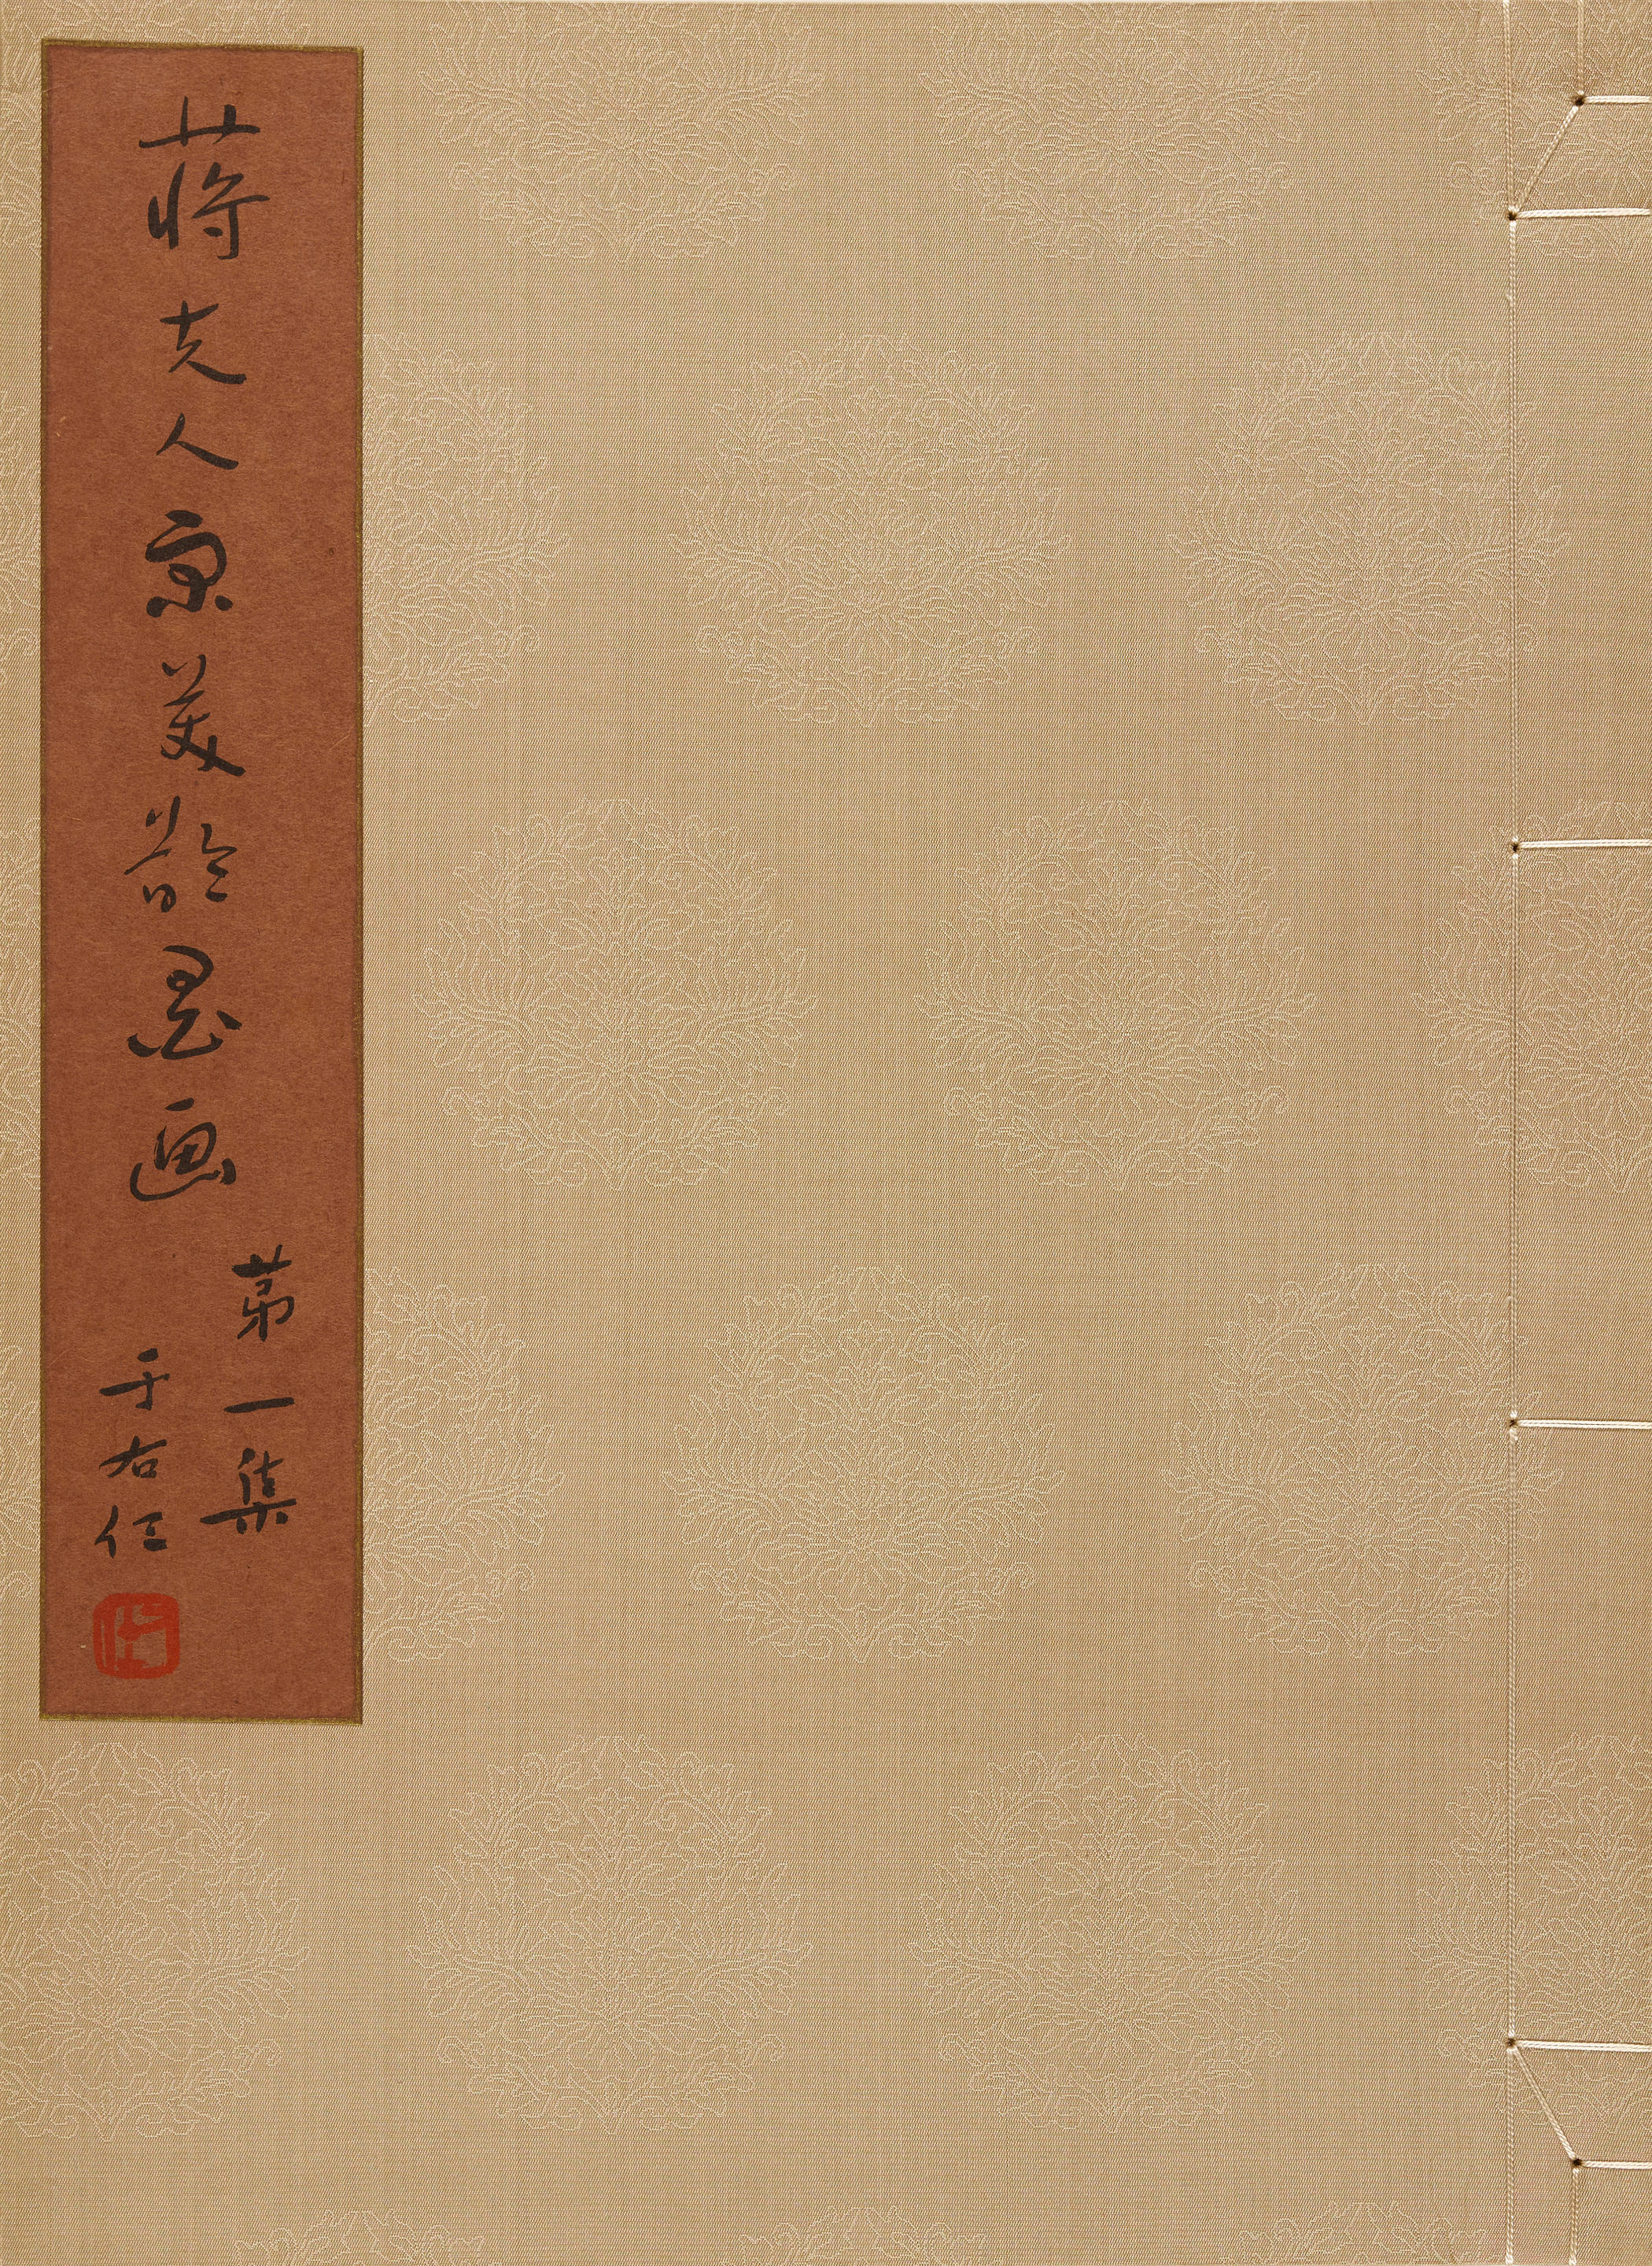 蔣夫人宋美齡墨画
第一集
于右任